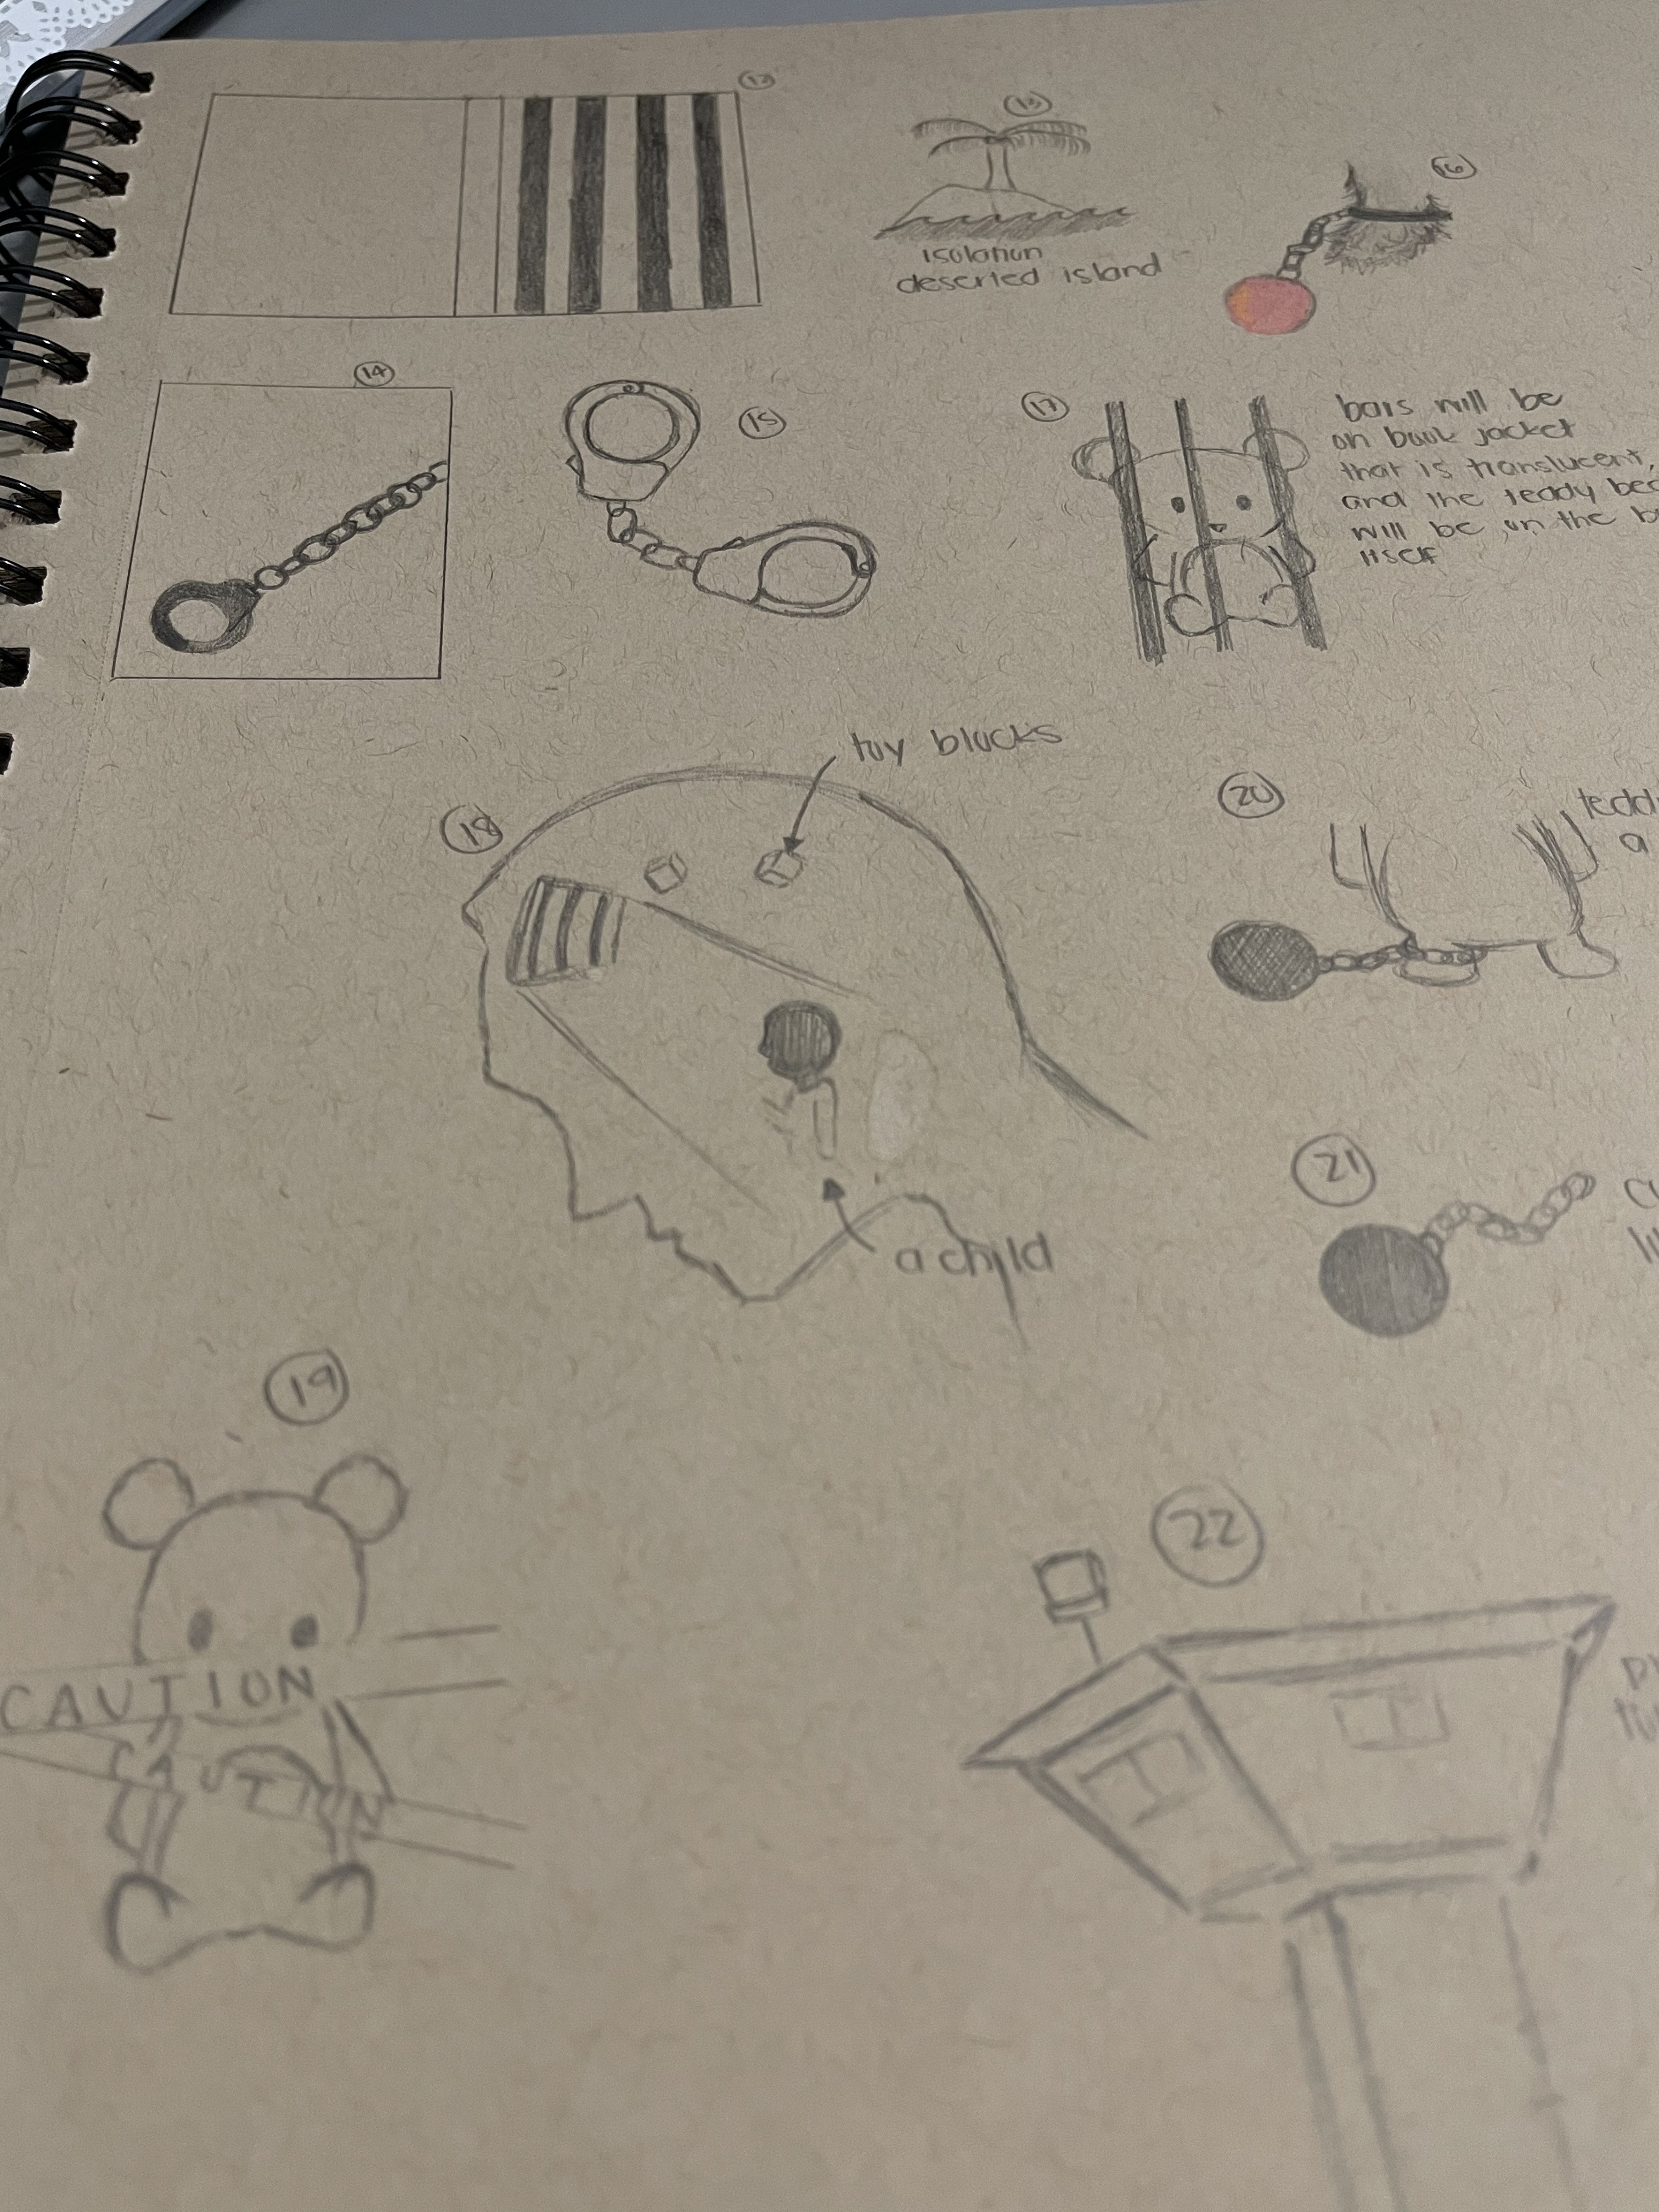 12
13
isolation
deserted island
16
14
15
17
bars will be
on book jacket
that is translucent,
and the teddy
will be on the
itself
toy blocks
18
20
a
a child
21
19
CAUTION
CAUTION
22